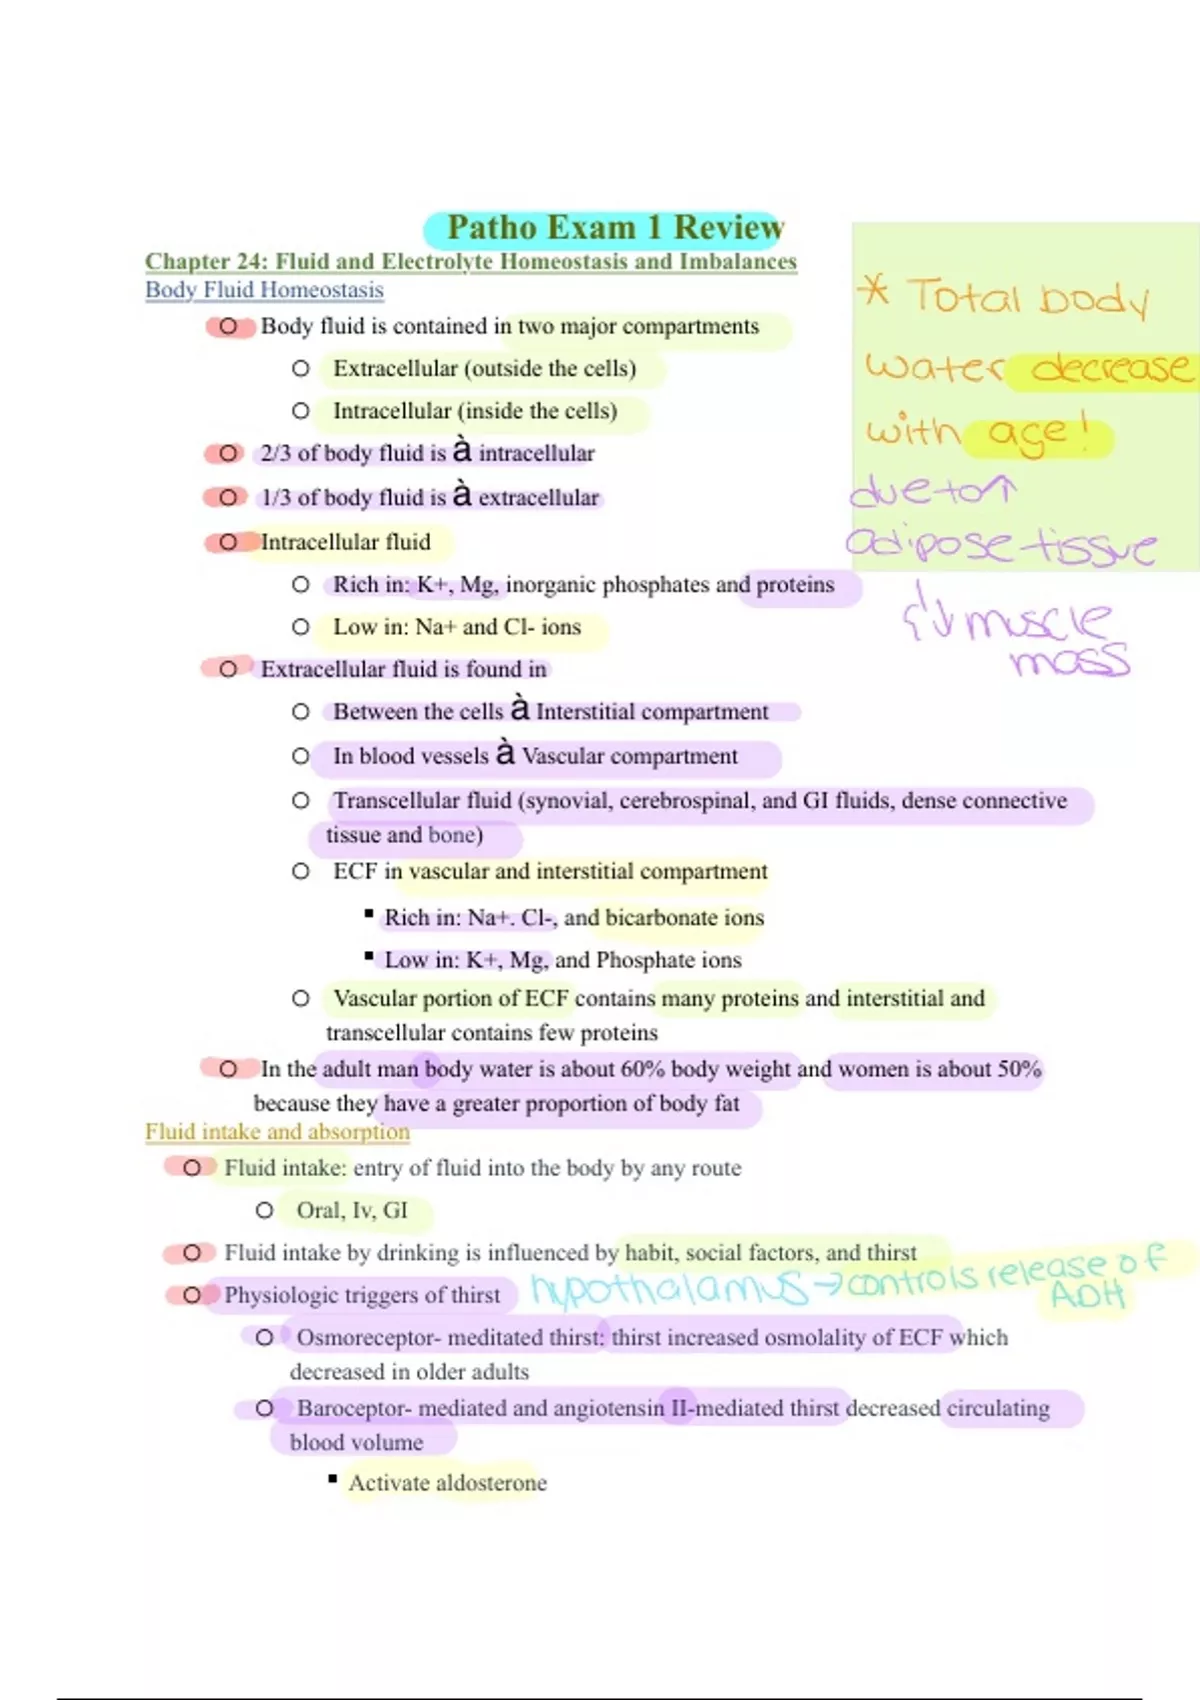 Patho Exam 1 Review
Chapter 24: Fluid and Electrolyte Homeostasis and Imbalances
Body Fluid Homeostasis
Body fluid is contained in two major compartments
Extracellular (outside the cells)
Intracellular (inside the cells)
2/3 of body fluid is à intracellular
1/3 of body fluid is à extracellular
Intracellular fluid
Rich in: K+, Mg, inorganic phosphates and proteins
Low in: Na+ and Cl- ions
Extracellular fluid is found in
Between the cells à Interstitial compartment
In blood vessels à Vascular compartment
Transcellular fluid (synovial, cerebrospinal, and GI fluids, dense connective
tissue and bone)
ECF in vascular and interstitial compartment
Rich in: Na+. Cl-, and bicarbonate ions
Low in: K+, Mg, and Phosphate ions
Vascular portion of ECF contains many proteins and interstitial and
transcellular contains few proteins
In the adult man body water is about 60% body weight and women is about 50%
because they have a greater proportion of body fat
* Total body
water decrease
with age!
due to ↑
adipose tissue
{↓ muscle
mass
Fluid intake and absorption
Fluid intake: entry of fluid into the body by any route
Oral, Iv, GI
Fluid intake by drinking is influenced by habit, social factors, and thirst
Physiologic triggers of thirst
hypothalamus → controls release of
ADH
Osmoreceptor- meditated thirst: thirst increased osmolality of ECF which
decreased in older adults
Baroceptor- mediated and angiotensin II-mediated thirst decreased circulating
blood volume
Activate aldosterone